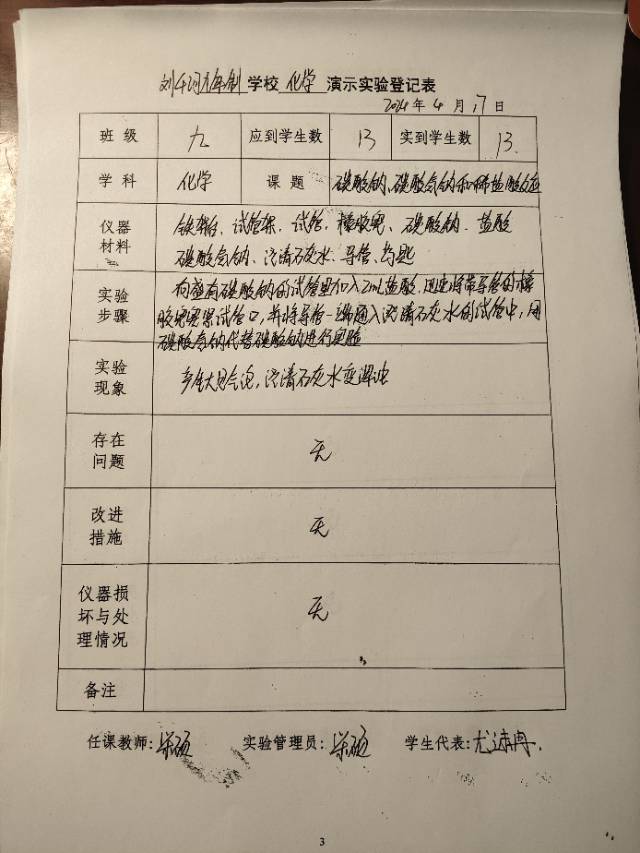 学校 化学 演示实验登记表
2024年4月17日
班级 九 应到学生数 13 实到学生数 13
学科 化学 课题 碳酸钠、碳酸氢钠和稀盐酸反应
仪器材料 铁架台、试管架、试管、橡胶塞、碳酸钠、盐酸
碳酸氢钠、澄清石灰水、导管、药匙
实验步骤 向盛有碳酸钠的试管里加入2mL盐酸,迅速将带导管的橡
胶塞塞紧试管口,并将导管一端通入澄清石灰水的试管中,用
碳酸氢钠代替碳酸钠进行实验
实验现象 产生大量气泡,澄清石灰水变浑浊
存在问题 无
改进措施 无
仪器损坏与处理情况 无
备注
任课教师: 实验管理员: 学生代表:
3